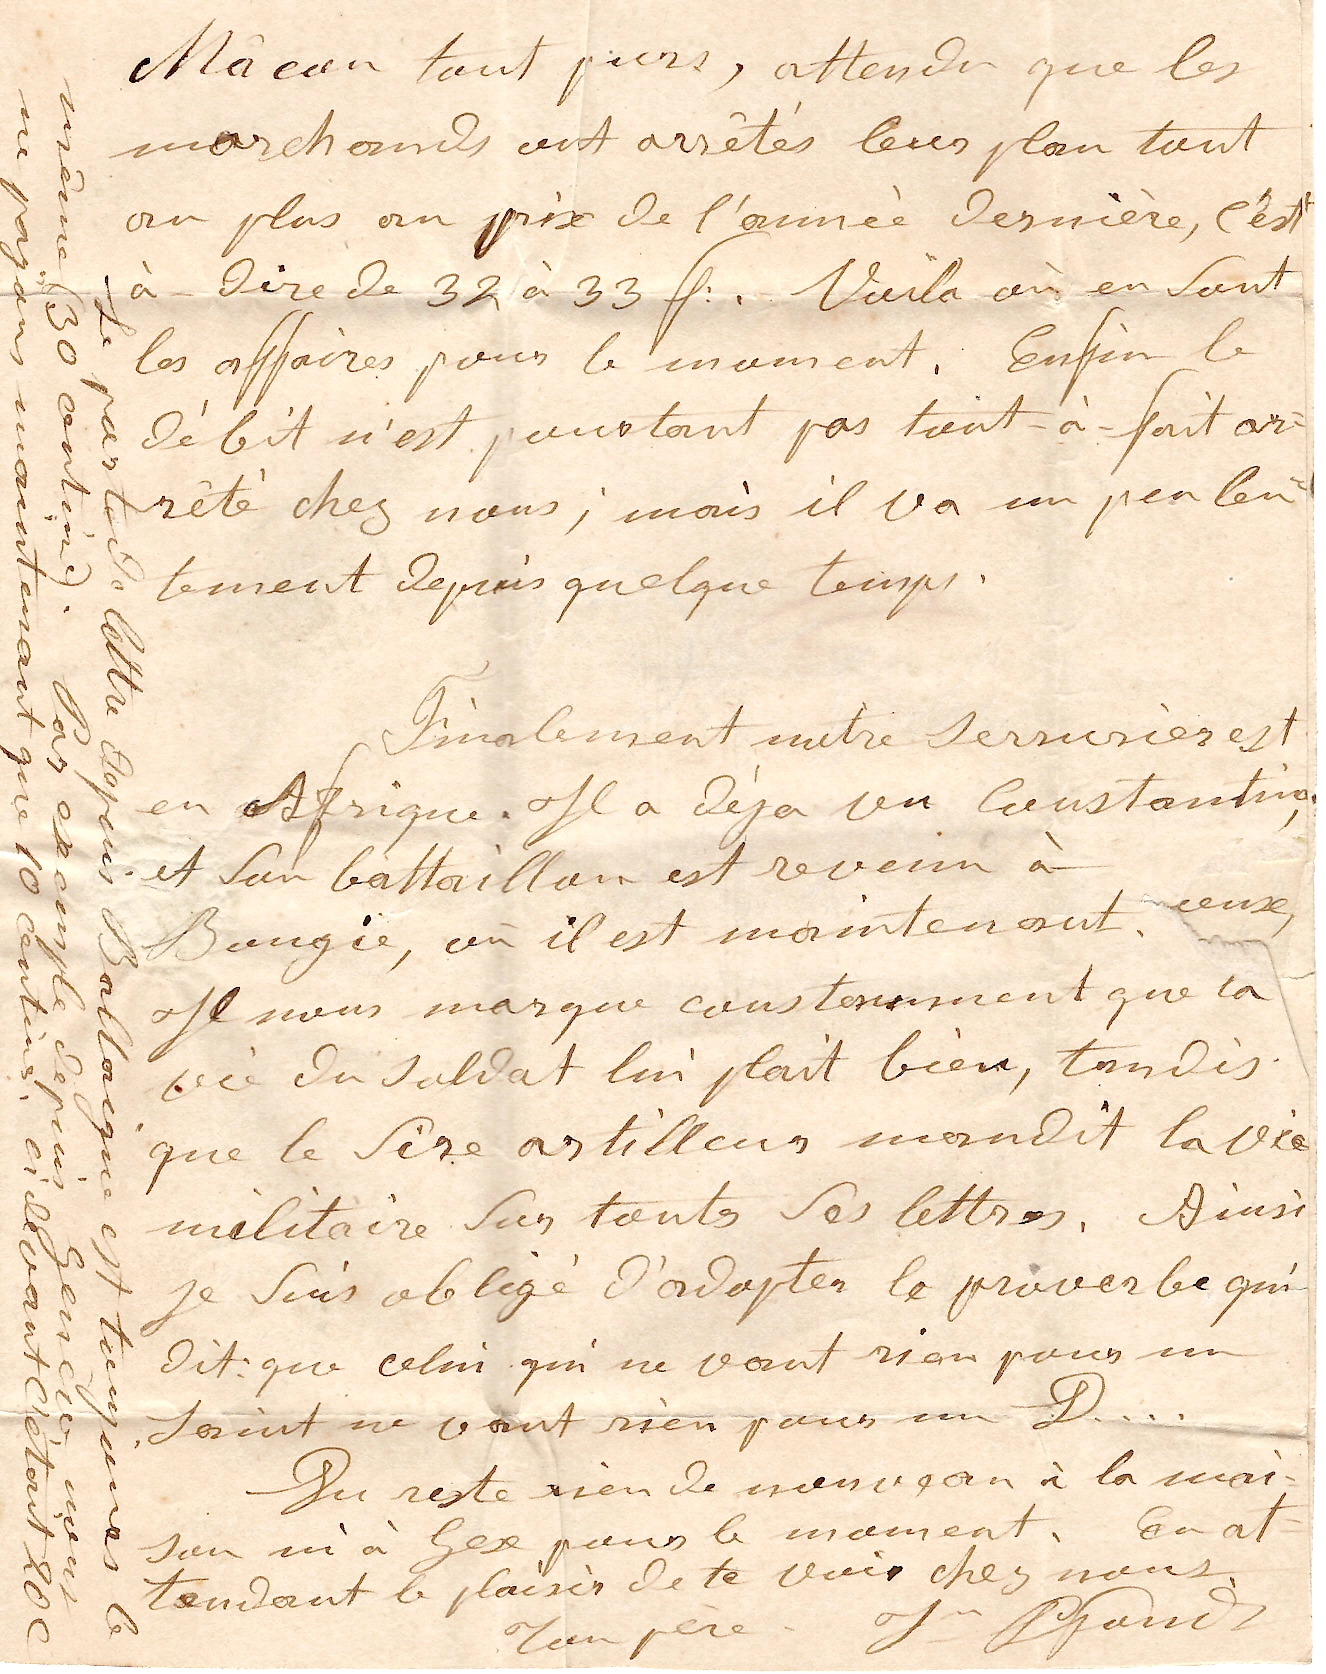 Mâcon tout purs, attendu que les
marchands ont arrêtés leur plan tout
au plus au prix de l'année dernière, c'est
à-dire de 32 à 33 f.. Voila où en sont
les affaires pour le moment. Enfin le
débit n'est pourtant pas tout-à-fait ar=
rêté chez nous; mais il va un peu len=
tement depuis quelque temps.
Finalement notre serrurier est
en Afrique. Il a déja vu Constantine,
et son battaillon est revenu à
Bougie, où il est maintenant.
Il nous marque constemment que la
vie du soldat lui plait bien, tandis
que le Sire artilleur maudit la vie
militaire sur touts ses lettres. Ainsi
je suis obligé d'adopter le proverbe qui
dit: que celui qui ne vaut rien pour un
saint ne vaut rien pour un D....
Du reste rien de nouveau à la mai-
son ni à Gex pour le moment. En at=
tendant le plaisir de te voir chez nous.
Ton père. Jn
Le port de lettre depuis Ballaigue est toujours le
même (30 centim). Par exemple depuis Genève nous
ne payons maintenant que 10 centim. ci devant c'étaut 20 c